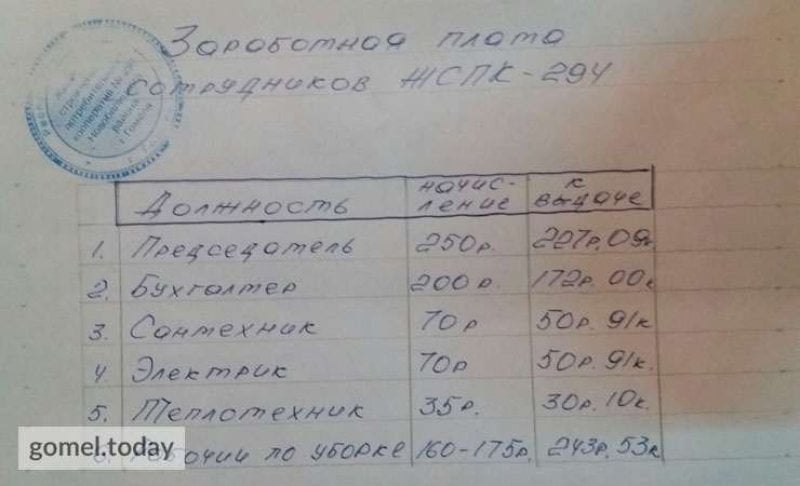 Заработная плата
сотрудников ЖСПК-294
Должность начис-ление к выдаче
1. Председатель 250р. 227р. 09к.
2. Бухгалтер 200р. 172р. 00к
3. Сантехник 70р 50р. 91к
4. Электрик 70р 50р. 91к.
5. Теплотехник 35р. 30р. 10к.
по уборке 160-175р. 243р. 53к
gomel.today